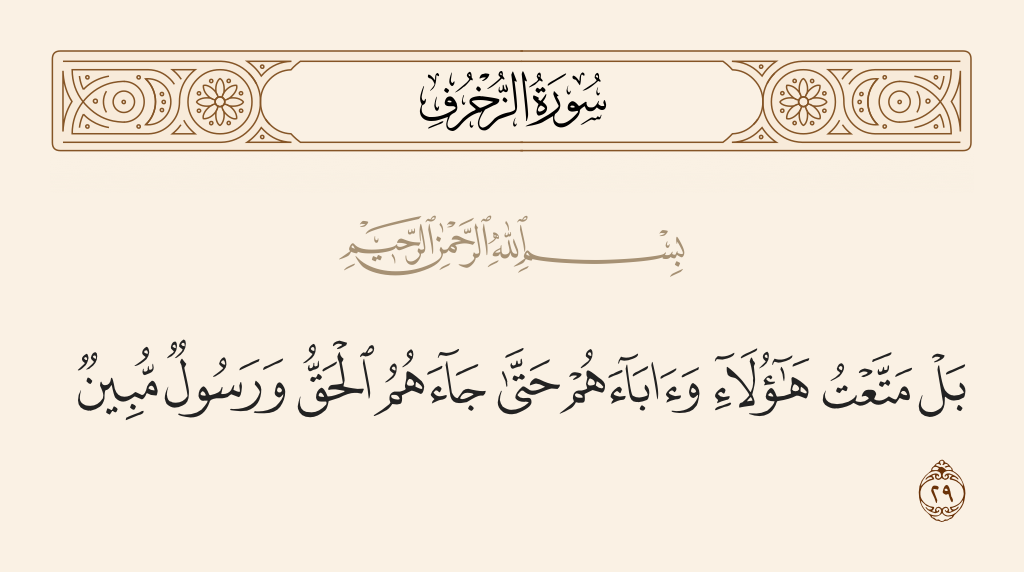 سُورَةُ الزُّخْرُفِ
بِسْمِ ٱللَّهِ ٱلرَّحْمَٰنِ ٱلرَّحِيمِ
بَلْ مَتَّعْتُ هَـٰٓؤُلَآءِ وَءَابَآءَهُمْ حَتَّىٰ جَآءَهُمُ ٱلْحَقُّ وَرَسُولٌ مُّبِينٌ
٢٩